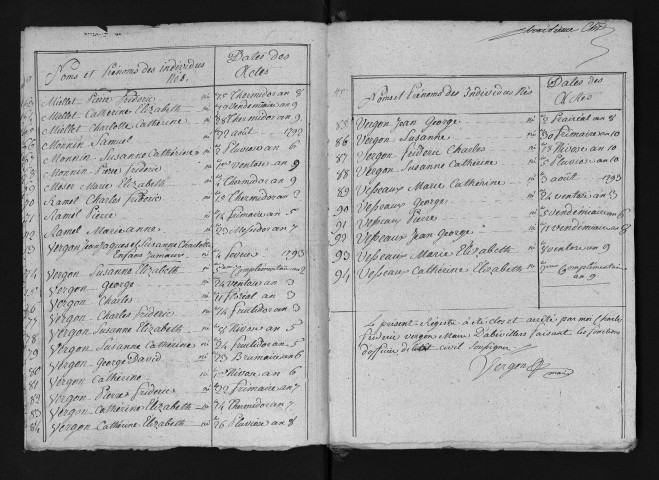 Noms et Prénoms des individus Nés.
Dates des Actes
Miellot Pierre Frideric né 15 Thermidor an 8
Miellot Catherine Elizabeth né vendemiaire an 9
Miellot Charlotte Catherine né 28 Thermidor an 9
Monnin Samuel né 22 août 1792
Monnin Susanne Catherine né Pluviose an 6
Monnin Pierre Frideric né ventose an 9
Moser Marie Elizabeth né Thermidor an 9
70 Ramel Charles Frideric né 19 Thermidor an 2
71 Ramel Pierre né 24 frimaire an 5
72 Ramel Marie anne né 20 Messidor an 7
73 Vergon Jean Jaques et Susanne Charlotte Enfans Jumeaux né 4 fevrier 1793
74 Vergon Susanne Elizabeth né 5 Complémentaire an 2
75 Vergon George né 24 ventose an 3
76 Vergon Charles né 11 floréal an 3
77 Vergon Charles Frideric né 14 fructidor an 4
78 Vergon Susanne Elizabeth né 8 Nivose an 5
79 Vergon Susanne Catherine né 24 fructidor an 5
80 Vergon George David né 23 Brumaire an 6
81 Vergon Catherine né Nivose an 6
82 Vergon Pierre Frideric né 22 Frimaire an 7
83 Vergon Catherine Elizabeth né 24 Thermidor an 7
84 Vergon Catherine Elizabeth né 26 Pluviose an 8
Noms et Prénoms des Individus Nés
Dates des Actes
85 Vergon Jean George né 8 Prairial an 8
86 Vergon Susanne né 30 Frimaire an 10
87 Vergon Frideric Charles né 18 Nivose an 10
88 Vergon Susanne Catherine né 5 Pluviose an 10
89 Vesseaux Marie Catherine né 3 août 1793
90 Vesseaux George né 24 ventose an 3
91 Vesseaux Pierre né 5 vendemiaire an 6
92 Vesseaux Jean George né 11 vendemiaire an 8
93 Vesseaux Marie Elizabeth né ventose an 9
94 Vesseaux Catherine Elizabeth né Complementaire an 9
Le present Régistre à été clos et arrêté par moi Charle
Frideric vergon Maire Dabévillers faisant les fonctions
d'officier de l'état civil soussigner
Vergon
maire